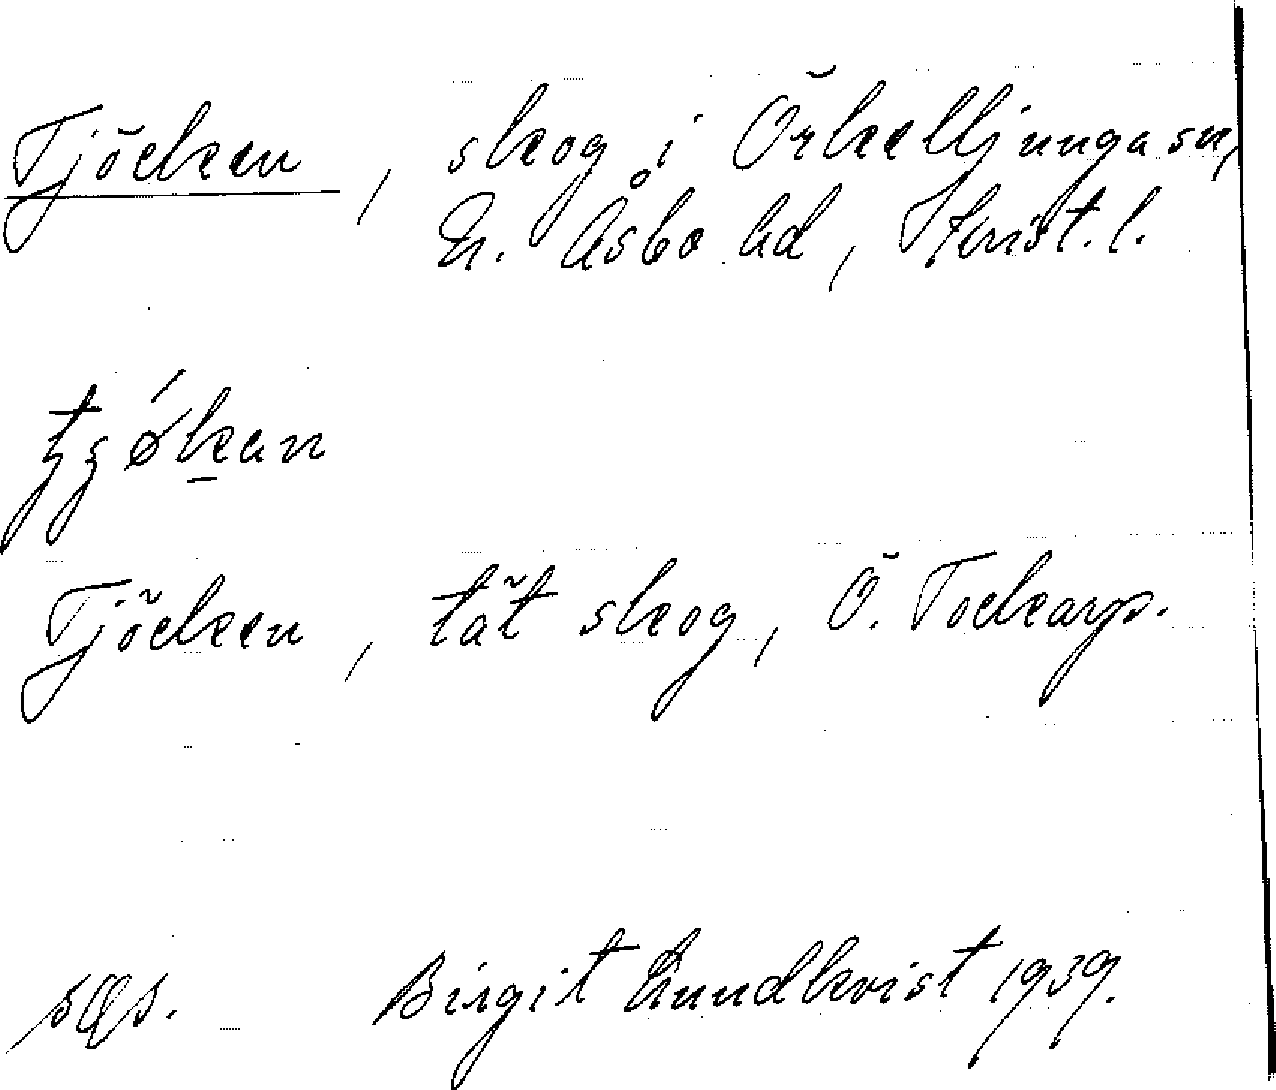 Tjöcken, skog i Örkelljunga sn,
N. Åsbo hd, Krist. l.
tjö́kan
Tjöcken, tät skog, Ö. Tockarp.
Birgit Lundkvist 1939.